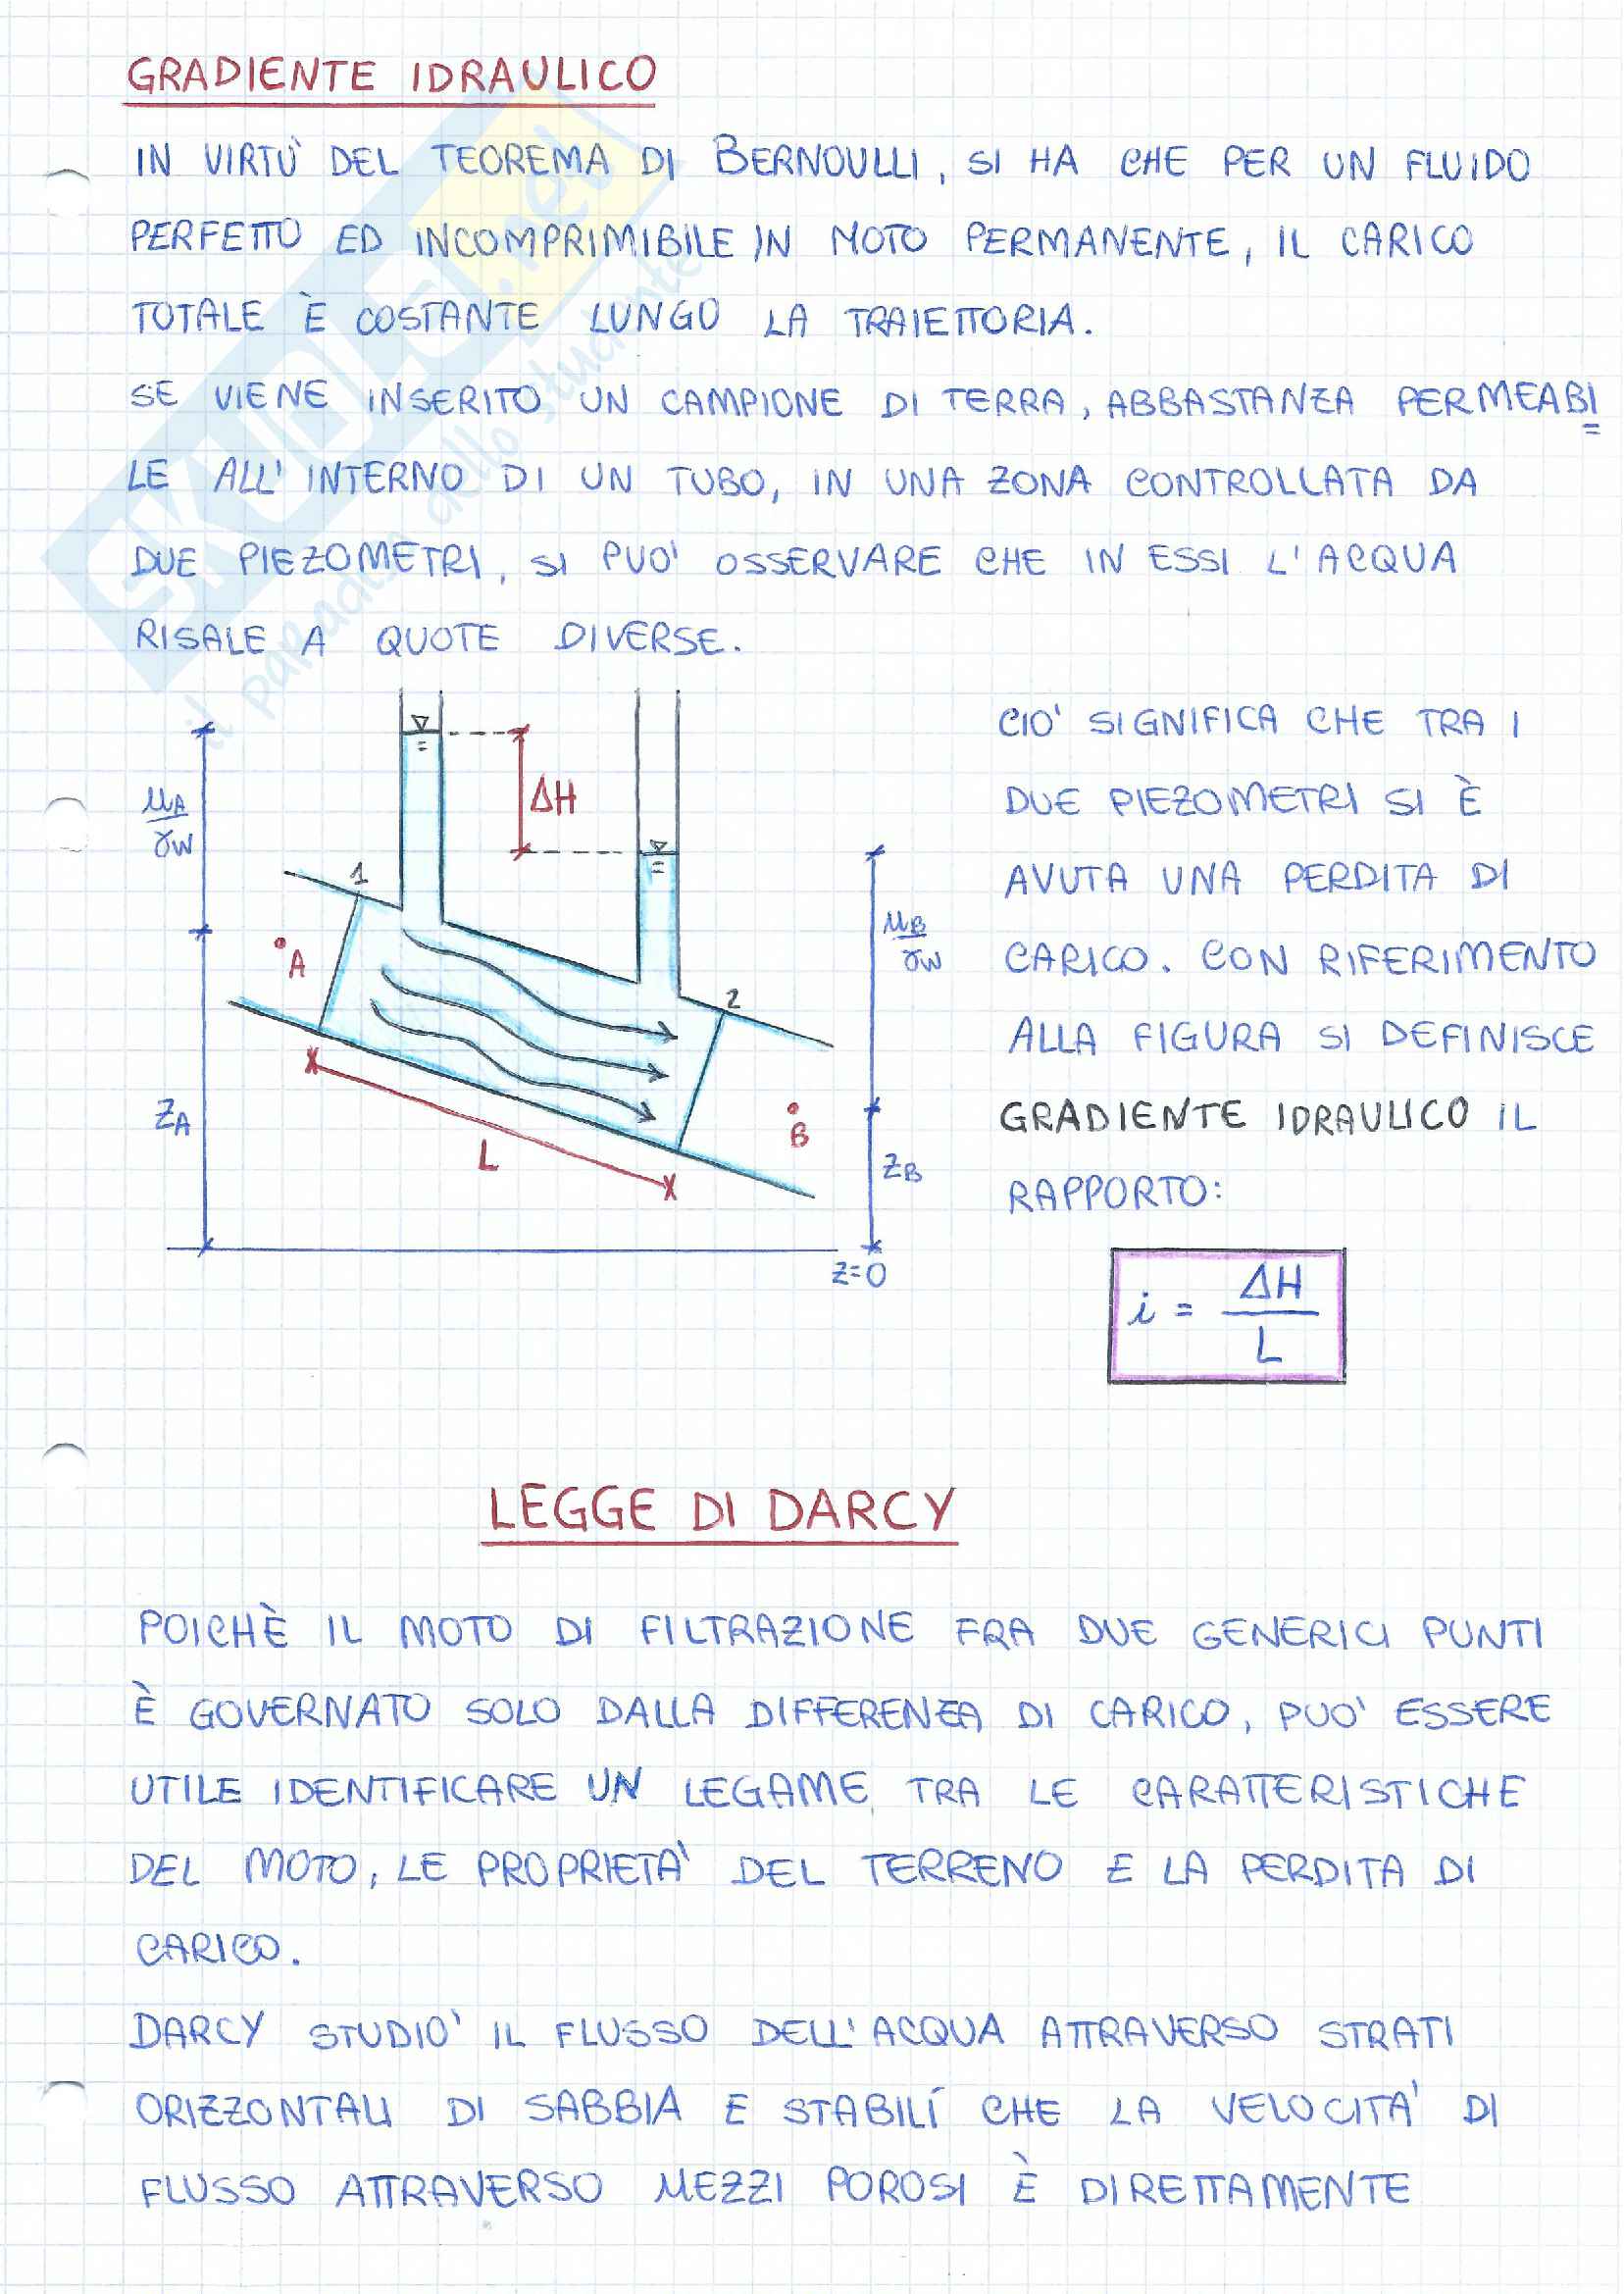 GRADIENTE IDRAULICO
IN VIRTÙ DEL TEOREMA DI BERNOULLI, SI HA CHE PER UN FLUIDO
PERFETTO ED INCOMPRIMIBILE IN MOTO PERMANENTE, IL CARICO
TOTALE È COSTANTE LUNGO LA TRAIETTORIA.
SE VIENE INSERITO UN CAMPIONE DI TERRA, ABBASTANZA PERMEABI
LE ALL'INTERNO DI UN TUBO, IN UNA ZONA CONTROLLATA DA
DUE PIEZOMETRI, SI PUO' OSSERVARE CHE IN ESSI L'ACQUA
RISALE A QUOTE DIVERSE.
SKUOLA.net
il paradiso dello studente
uA
γw
ΔH
1
A
ZA
L
2
B
uB
γw
ZB
Z=0
CIO' SIGNIFICA CHE TRA I
DUE PIEZOMETRI SI È
AVUTA UNA PERDITA DI
CARICO. CON RIFERIMENTO
ALLA FIGURA SI DEFINISCE
GRADIENTE IDRAULICO IL
RAPPORTO:
i = ΔH / L
LEGGE DI DARCY
POICHÈ IL MOTO DI FILTRAZIONE FRA DUE GENERICI PUNTI
È GOVERNATO SOLO DALLA DIFFERENZA DI CARICO, PUO' ESSERE
UTILE IDENTIFICARE UN LEGAME TRA LE CARATTERISTICHE
DEL MOTO, LE PROPRIETA' DEL TERRENO E LA PERDITA DI
CARICO.
DARCY STUDIO' IL FLUSSO DELL'ACQUA ATTRAVERSO STRATI
ORIZZONTALI DI SABBIA E STABILÍ CHE LA VELOCITA' DI
FLUSSO ATTRAVERSO MEZZI POROSI È DIRETTAMENTE